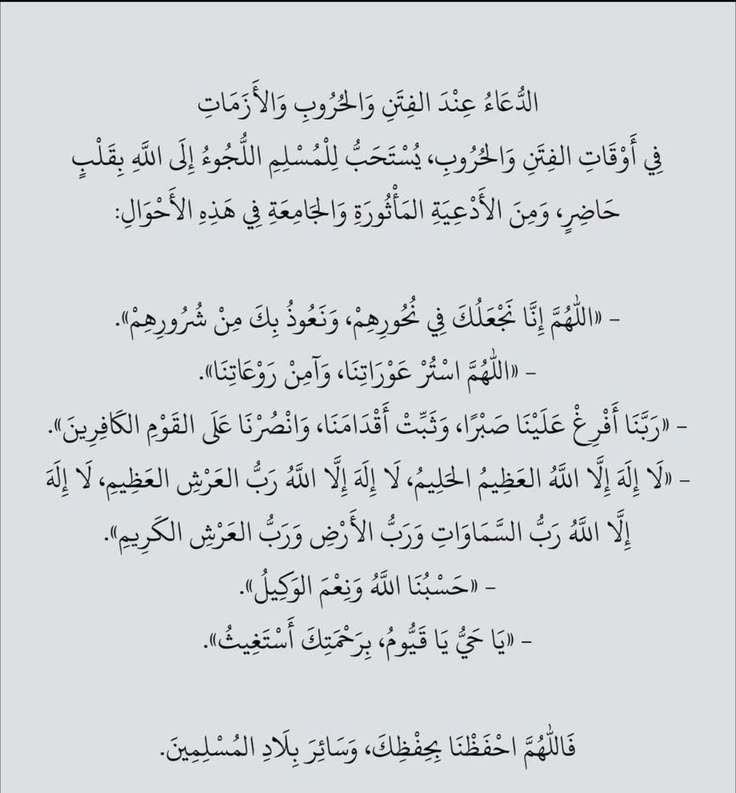 الدُّعَاءُ عِنْدَ الفِتَنِ وَالحُرُوبِ وَالأَزَمَاتِ
فِي أَوْقَاتِ الفِتَنِ وَالحُرُوبِ، يُسْتَحَبُّ لِلْمُسْلِمِ اللُّجُوءُ إِلَى اللَّهِ بِقَلْبٍ
حَاضِرٍ، وَمِنَ الأَدْعِيَةِ المَأْثُورَةِ وَالجَامِعَةِ فِي هَذِهِ الأَحْوَالِ:
– «اللَّهُمَّ إِنَّا نَجْعَلُكَ فِي نُحُورِهِمْ، وَنَعُوذُ بِكَ مِنْ شُرُورِهِمْ».
– «اللَّهُمَّ اسْتُرْ عَوْرَاتِنَا، وَآمِنْ رَوْعَاتِنَا».
– «رَبَّنَا أَفْرِغْ عَلَيْنَا صَبْرًا، وَثَبِّتْ أَقْدَامَنَا، وَانْصُرْنَا عَلَى القَوْمِ الكَافِرِينَ».
– «لَا إِلَهَ إِلَّا اللَّهُ العَظِيمُ الحَلِيمُ، لَا إِلَهَ إِلَّا اللَّهُ رَبُّ العَرْشِ العَظِيمِ، لَا إِلَهَ
إِلَّا اللَّهُ رَبُّ السَّمَاوَاتِ وَرَبُّ الأَرْضِ وَرَبُّ العَرْشِ الكَرِيمِ».
– «حَسْبُنَا اللَّهُ وَنِعْمَ الوَكِيلُ».
– «يَا حَيُّ يَا قَيُّومُ، بِرَحْمَتِكَ أَسْتَغِيثُ».
فَاللَّهُمَّ احْفَظْنَا بِحِفْظِكَ، وَسَائِرَ بِلَادِ المُسْلِمِينَ.